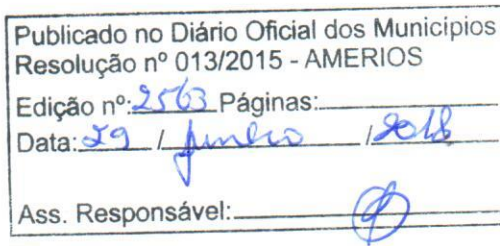 Publicado no Diário Oficial dos Municípios
Resolução nº 013/2015 - AMERIOS
Edição nº: 2563 Páginas:
Data: 29 / junho / 2018
Ass. Responsável: